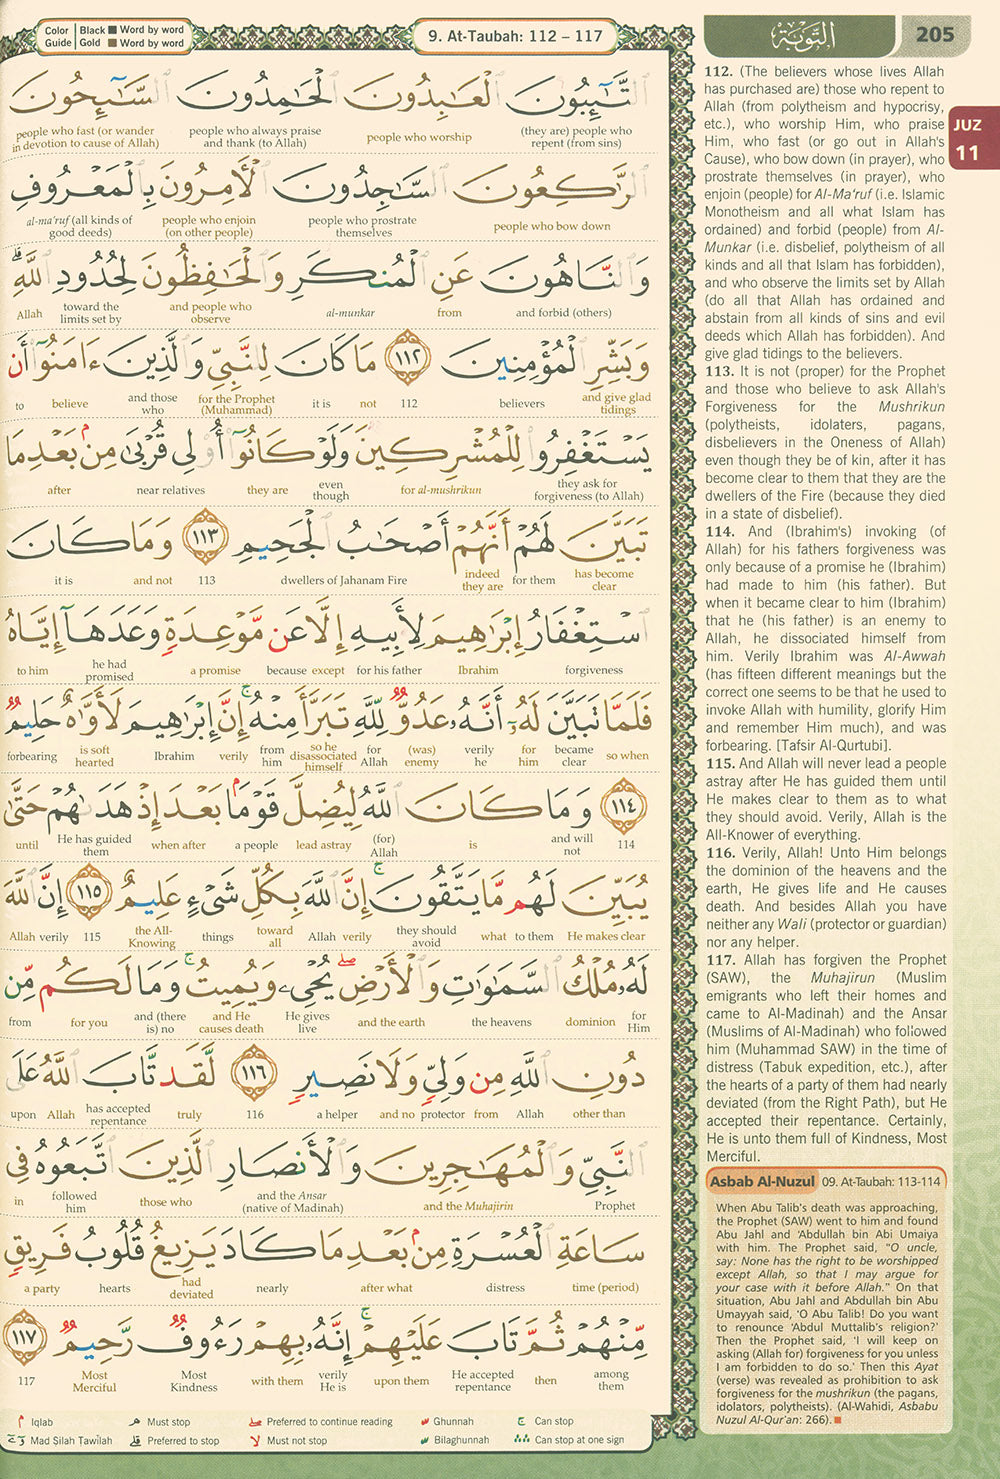 Color Guide | Black ■ Word by word
Gold ■ Word by word
9. At-Taubah: 112 – 117
التوبة
205
JUZ
11
ٱلتَّٰٓئِبُونَ ٱلْعَٰبِدُونَ ٱلْحَٰمِدُونَ ٱلسَّٰٓئِحُونَ
(they are) people who repent (from sins) people who worship people who always praise and thank (to Allah) people who fast (or wander in devotion to cause of Allah)
ٱلرَّٰكِعُونَ ٱلسَّٰجِدُونَ ٱلْأَمِرُونَ بِٱلْمَعْرُوفِ
people who bow down people who prostrate themselves people who enjoin (on other people) al-ma'ruf (all kinds of good deeds)
وَٱلنَّاهُونَ عَنِ ٱلْمُنكَرِ وَٱلْحَٰفِظُونَ لِحُدُودِ ٱللَّهِ ۗ
and forbid (others) from al-munkar and people who observe toward the limits set by Allah
وَبَشِّرِ ٱلْمُؤْمِنِينَ ١١٢ مَا كَانَ لِلنَّبِيِّ وَٱلَّذِينَ ءَامَنُوٓا۟ أَن
and give glad tidings believers 112 not it is for the Prophet (Muhammad) and those who believe to
يَسْتَغْفِرُوا۟ لِلْمُشْرِكِينَ وَلَوْ كَانُوٓا۟ أُو۟لِى قُرْبَىٰ مِنۢ بَعْدِ مَا
they ask for forgiveness (to Allah) for al-mushrikun even though they are near relatives after
تَبَيَّنَ لَهُمْ أَنَّهُمْ أَصْحَٰبُ ٱلْجَحِيمِ ١١٣ وَمَا كَانَ
has become clear for them indeed they are dwellers of Jahanam Fire 113 and not it is
ٱسْتِغْفَارُ إِبْرَٰهِيمَ لِأَبِيهِ إِلَّا عَن مَّوْعِدَةٍ وَعَدَهَآ إِيَّاهُ
forgiveness Ibrahim for his father except because a promise he had promised to him
فَلَمَّا تَبَيَّنَ لَهُۥٓ أَنَّهُۥ عَدُوٌّ لِّلَّهِ تَبَرَّأَ مِنْهُ ۚ إِنَّ إِبْرَٰهِيمَ لَأَوَّٰهٌ حَلِيمٌ
so when became clear for him verily he (was) enemy for Allah so he disassociated himself from him verily Ibrahim is soft hearted forbearing
١١٤ وَمَا كَانَ ٱللَّهُ لِيُضِلَّ قَوْمًۢا بَعْدَ إِذْ هَدَىٰهُمْ حَتَّىٰ
114 and will not is (for) Allah lead astray a people when after He has guided them until
يُبَيِّنَ لَهُم مَّا يَتَّقُونَ ۚ إِنَّ ٱللَّهَ بِكُلِّ شَىْءٍ عَلِيمٌ ١١٥ إِنَّ ٱللَّهَ
He makes clear to them what they should avoid verily Allah toward all things the All-Knowing 115 verily Allah
لَهُۥ مُلْكُ ٱلسَّمَٰوَٰتِ وَٱلْأَرْضِ ۖ يُحْىِۦ وَيُمِيتُ ۚ وَمَا لَكُم مِّن
for Him dominion the heavens and the earth He gives live and He causes death and (there is) no for you from
دُونِ ٱللَّهِ مِن وَلِىٍّ وَلَا نَصِيرٍ ١١٦ لَّقَد تَّابَ ٱللَّهُ عَلَى
other than Allah from protector and no a helper 116 truly has accepted repentance Allah upon
ٱلنَّبِىِّ وَٱلْمُهَٰجِرِينَ وَٱلْأَنصَارِ ٱلَّذِينَ ٱتَّبَعُوهُ فِى
Prophet and the Muhajirin and the Ansar (native of Madinah) those who followed him in
سَاعَةِ ٱلْعُسْرَةِ مِنۢ بَعْدِ مَا كَادَ يَزِيغُ قُلُوبُ فَرِيقٍ
time (period) distress after what nearly had deviated hearts a party
مِّنْهُمْ ثُمَّ تَابَ عَلَيْهِمْ ۚ إِنَّهُۥ بِهِمْ رَءُوفٌ رَّحِيمٌ ١١٧
among them then He accepted repentance upon them verily He is with them Most Kindness Most Merciful 117
Iqlab Must stop Preferred to continue reading Ghunnah Can stop
Mad Silah Tawilah Preferred to stop Must not stop Bilaghunnah Can stop at one sign
112. (The believers whose lives Allah
has purchased are) those who repent to
Allah (from polytheism and hypocrisy,
etc.), who worship Him, who praise
Him, who fast (or go out in Allah's
Cause), who bow down (in prayer), who
prostrate themselves (in prayer), who
enjoin (people) for Al-Ma'ruf (i.e. Islamic
Monotheism and all what Islam has
ordained) and forbid (people) from Al-
Munkar (i.e. disbelief, polytheism of all
kinds and all that Islam has forbidden),
and who observe the limits set by Allah
(do all that Allah has ordained and
abstain from all kinds of sins and evil
deeds which Allah has forbidden). And
give glad tidings to the believers.
113. It is not (proper) for the Prophet
and those who believe to ask Allah's
Forgiveness for the Mushrikun
(polytheists, idolaters, pagans,
disbelievers in the Oneness of Allah)
even though they be of kin, after it has
become clear to them that they are the
dwellers of the Fire (because they died
in a state of disbelief).
114. And (Ibrahim's) invoking (of
Allah) for his fathers forgiveness was
only because of a promise he (Ibrahim)
had made to him (his father). But
when it became clear to him (Ibrahim)
that he (his father) is an enemy to
Allah, he dissociated himself from
him. Verily Ibrahim was Al-Awwah
(has fifteen different meanings but the
correct one seems to be that he used to
invoke Allah with humility, glorify Him
and remember Him much), and was
forbearing. [Tafsir Al-Qurtubi].
115. And Allah will never lead a people
astray after He has guided them until
He makes clear to them as to what
they should avoid. Verily, Allah is the
All-Knower of everything.
116. Verily, Allah! Unto Him belongs
the dominion of the heavens and the
earth, He gives life and He causes
death. And besides Allah you have
neither any Wali (protector or guardian)
nor any helper.
117. Allah has forgiven the Prophet
(SAW), the Muhajirun (Muslim
emigrants who left their homes and
came to Al-Madinah) and the Ansar
(Muslims of Al-Madinah) who followed
him (Muhammad SAW) in the time of
distress (Tabuk expedition, etc.), after
the hearts of a party of them had nearly
deviated (from the Right Path), but He
accepted their repentance. Certainly,
He is unto them full of Kindness, Most
Merciful.
Asbab Al-Nuzul 09. At-Taubah: 113-114
When Abu Talib's death was approaching,
the Prophet (SAW) went to him and found
Abu Jahl and 'Abdullah bin Abi Umaiya
with him. The Prophet said, "O uncle,
say: None has the right to be worshipped
except Allah, so that I may argue for
your case with it before Allah." On that
situation, Abu Jahl and Abdullah bin Abu
Umayyah said, 'O Abu Talib! Do you want
to renounce 'Abdul Muttalib's religion?'
Then the Prophet said, 'I will keep on
asking (Allah for) forgiveness for you unless
I am forbidden to do so.' Then this Ayat
(verse) was revealed as prohibition to ask
forgiveness for the mushrikun (the pagans,
idolators, polytheists). (Al-Wahidi, Asbabu
Nuzul Al-Qur'an: 266).